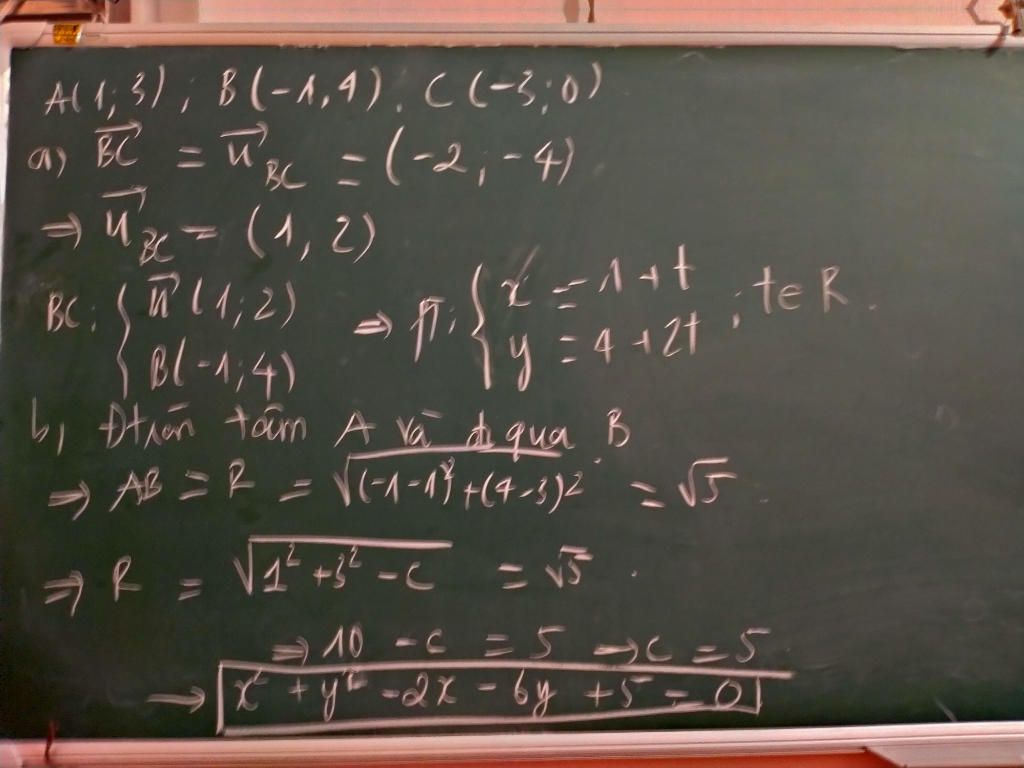 A(1;3); B(-1,4). C(-3;0)
a) BC = u BC = (-2; -4)
⇒ u BC = (1, 2)
BC: { u(1;2) B(-1;4) ⇒ pt: { x = -1+t y = 4+2t ; t∈R.
b, Đtròn tâm A và đi qua B
⇒ AB = R = √(-1-1)²+(4-3)² = √5.
⇒ R = √1²+3²-c = √5.
⇒ 10 - c = 5 → c = 5
→ x² + y² - 2x - 6y + 5 = 0